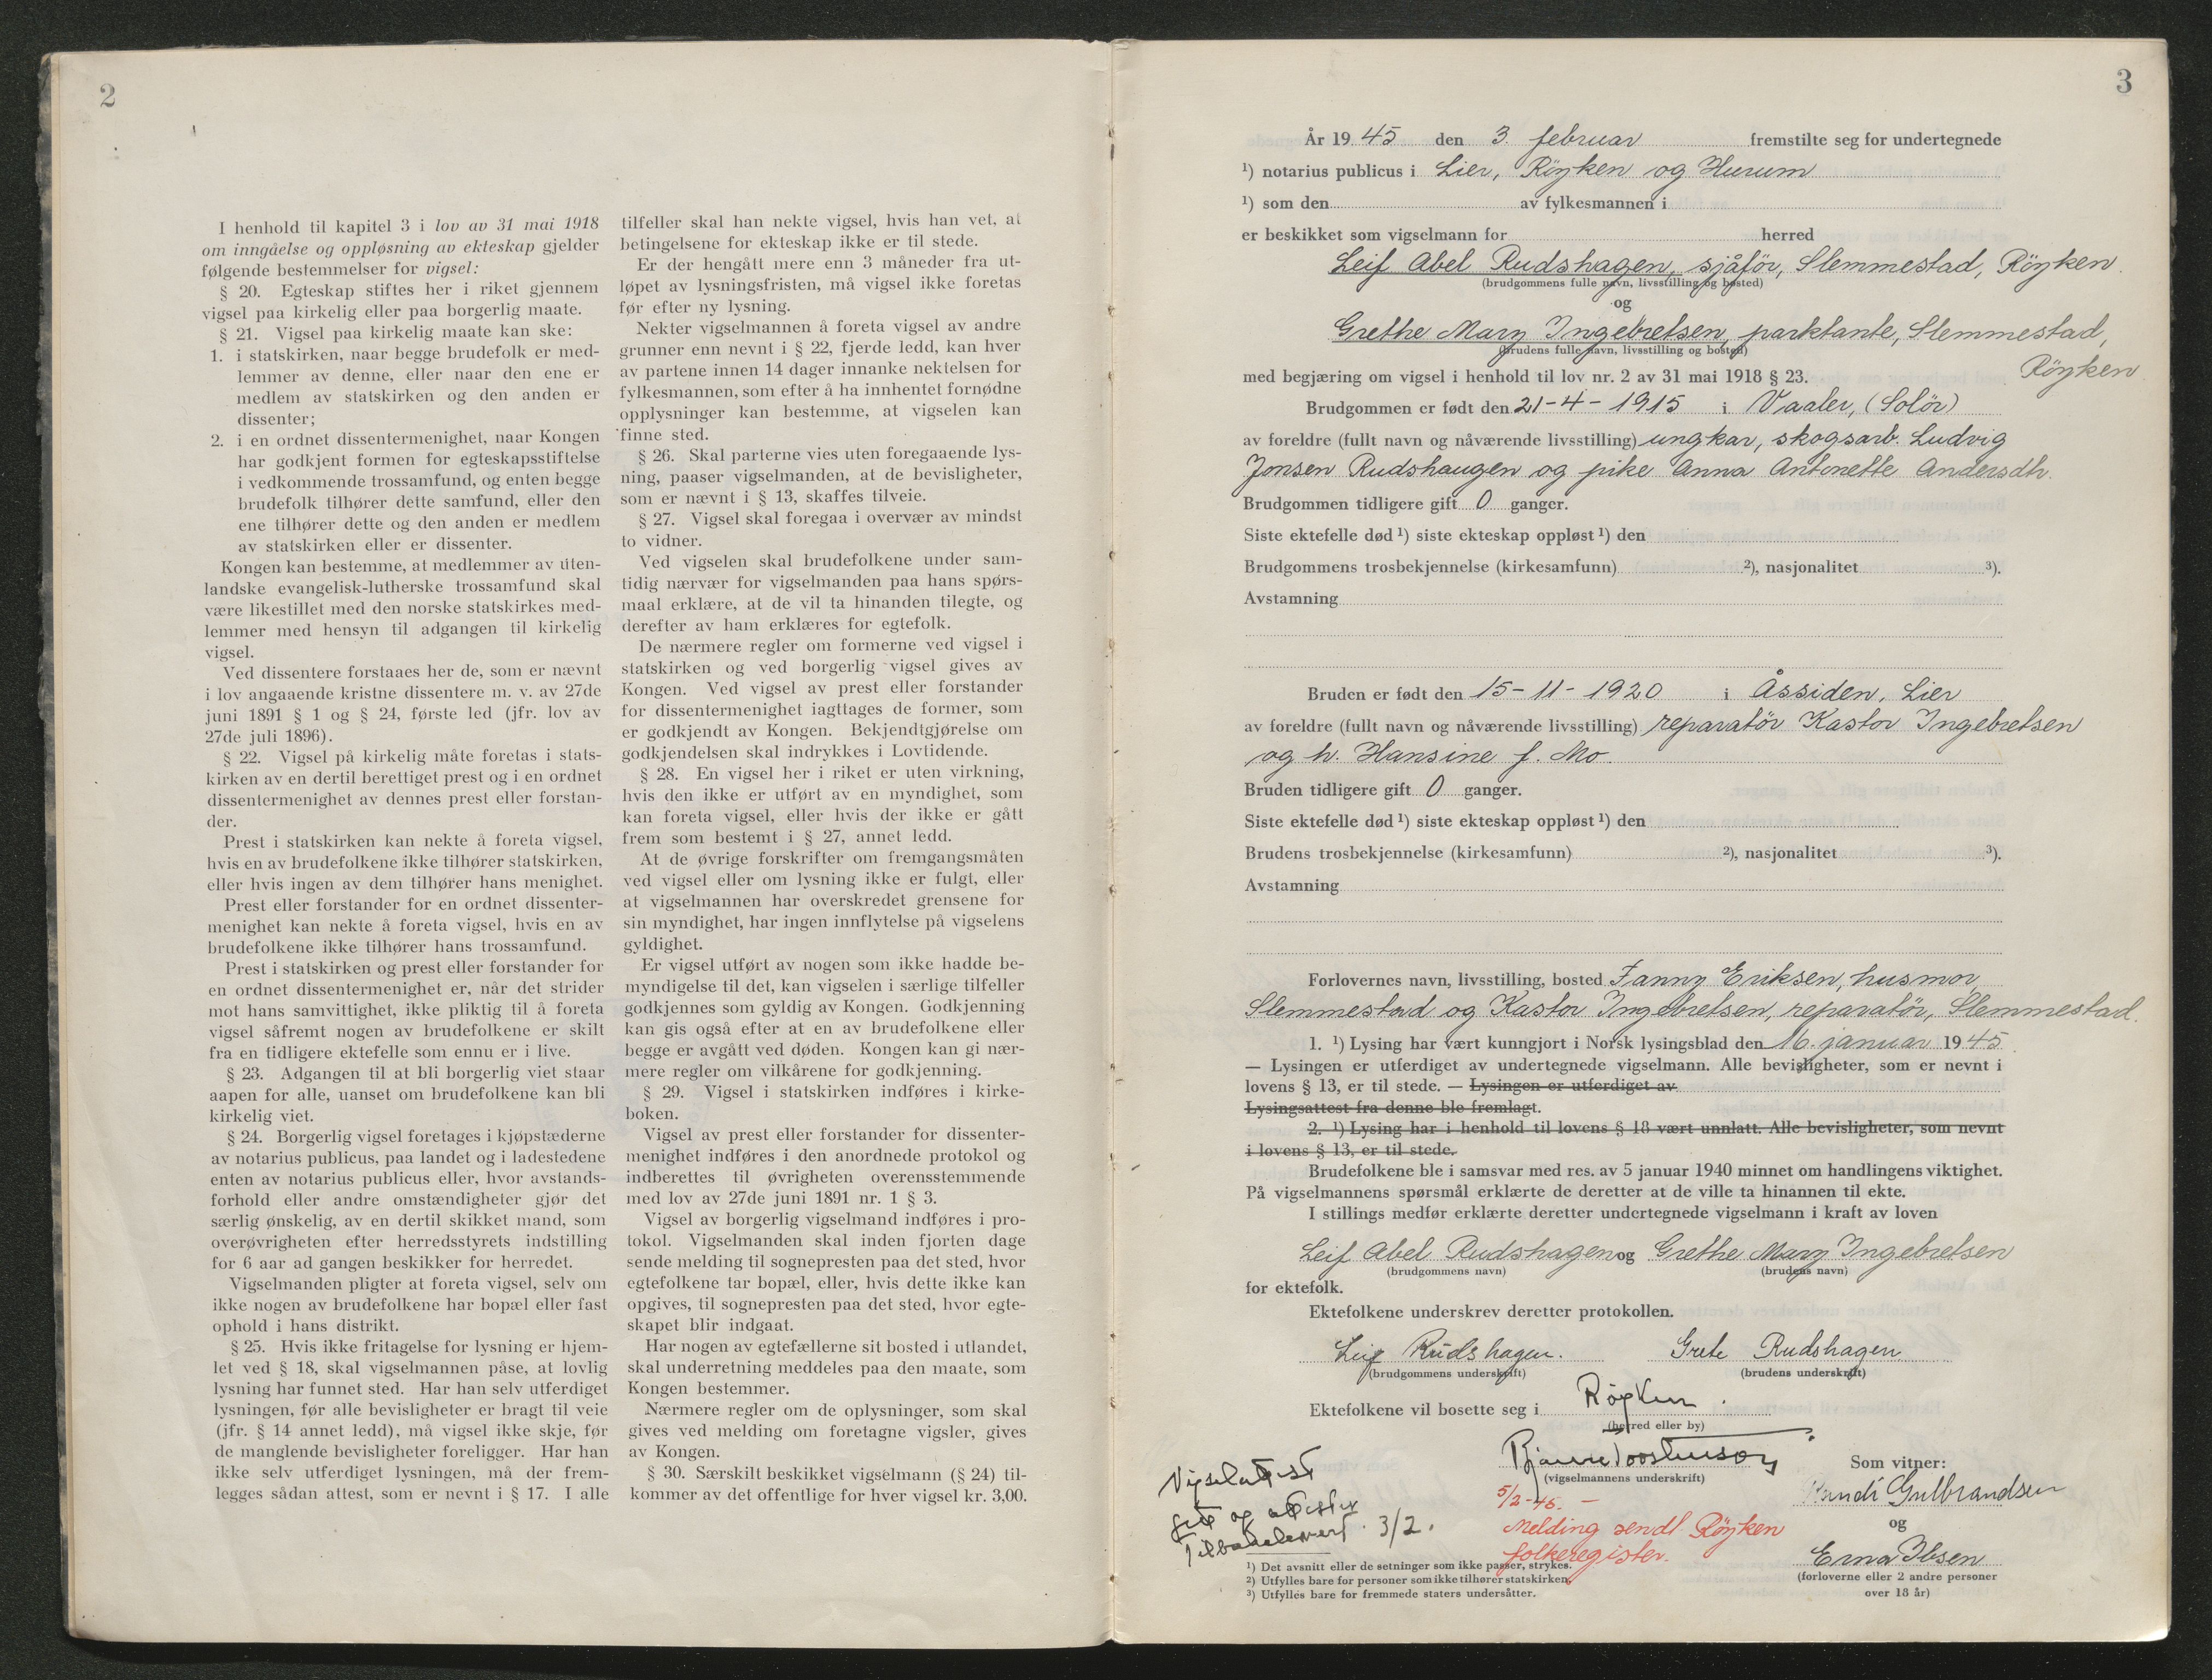 2
I henhold til kapitel 3 i lov av 31 mai 1918
om inngåelse og oppløsning av ekteskap gjelder
følgende bestemmelser for vigsel:
§ 20. Egteskap stiftes her i riket gjennem
vigsel paa kirkelig eller paa borgerlig maate.
§ 21. Vigsel paa kirkelig maate kan ske:
1. i statskirken, naar begge brudefolk er med-
lemmer av denne, eller naar den ene er
medlem av statskirken og den anden er
dissenter;
2. i en ordnet dissentermenighet, naar Kongen
har godkjent formen for egteskapsstiftelse
i vedkommende trossamfund, og enten begge
brudefolk tilhører dette samfund, eller den
ene tilhører dette og den anden er medlem
av statskirken eller er dissenter.
Kongen kan bestemme, at medlemmer av uten-
landske evangelisk-lutherske trossamfund skal
være likestillet med den norske statskirkes med-
lemmer med hensyn til adgangen til kirkelig
vigsel.
Ved dissentere forstaaes her de, som er nævnt
i lov angaaende kristne dissentere m. v. av 27de
juni 1891 § 1 og § 24, første led (jfr. lov av
27de juli 1896).
§ 22. Vigsel på kirkelig måte foretas i stats-
kirken av en dertil berettiget prest og i en ordnet
dissentermenighet av dennes prest eller forstan-
der.
Prest i statskirken kan nekte å foreta vigsel,
hvis en av brudefolkene ikke tilhører statskirken,
eller hvis ingen av dem tilhører hans menighet.
Prest eller forstander for en ordnet dissenter-
menighet kan nekte å foreta vigsel, hvis en av
brudefolkene ikke tilhører hans trossamfund.
Prest i statskirken og prest eller forstander for
en ordnet dissentermenighet er, når det strider
mot hans samvittighet, ikke pliktig til å foreta
vigsel såfremt nogen av brudefolkene er skilt
fra en tidligere ektefelle som ennu er i live.
§ 23. Adgangen til at bli borgerlig viet staar
aapen for alle, uanset om brudefolkene kan bli
kirkelig viet.
§ 24. Borgerlig vigsel foretages i kjøpstæderne
av notarius publicus, paa landet og i ladestedene
enten av notarius publicus eller, hvor avstands-
forhold eller andre omstændigheter gjør det
særlig ønskelig, av en dertil skikket mand, som
overøvrigheten efter herredsstyrets indstilling
for 6 aar ad gangen beskikker for herredet.
Vigselmanden pligter at foreta vigsel, selv om
ikke nogen av brudefolkene har bopæl eller fast
ophold i hans distrikt.
§ 25. Hvis ikke fritagelse for lysning er hjem-
let ved § 18, skal vigselmannen påse, at lovlig
lysning har funnet sted. Har han selv utferdiget
lysningen, før alle bevisligheter er bragt til veie
(jfr. § 14 annet ledd), må vigsel ikke skje, før
de manglende bevisligheter foreligger. Har han
ikke selv utferdiget lysningen, må der frem-
legges sådan attest, som er nevnt i § 17. I alle
tilfeller skal han nekte vigsel, hvis han vet, at
betingelsene for ekteskap ikke er til stede.
Er der hengått mere enn 3 måneder fra ut-
løpet av lysningsfristen, må vigsel ikke foretas
før efter ny lysning.
Nekter vigselmannen å foreta vigsel av andre
grunner enn nevnt i § 22, fjerde ledd, kan hver
av partene innen 14 dager innanke nektelsen for
fylkesmannen, som efter å ha innhentet fornødne
opplysninger kan bestemme, at vigselen kan
finne sted.
§ 26. Skal parterne vies uten foregaaende lys-
ning, paaser vigselmanden, at de bevisligheter,
som er nævnt i § 13, skaffes tilveie.
§ 27. Vigsel skal foregaa i overvær av mindst
to vidner.
Ved vigselen skal brudefolkene under sam-
tidig nærvær for vigselmanden paa hans spørs-
maal erklære, at de vil ta hinanden tilegte, og
derefter av ham erklæres for egtefolk.
De nærmere regler om formerne ved vigsel i
statskirken og ved borgerlig vigsel gives av
Kongen. Ved vigsel av prest eller forstander
for dissentermenighet iagttages de former, som
er godkjendt av Kongen. Bekjendtgjørelse om
godkjendelsen skal indrykkes i Lovtidende.
§ 28. En vigsel her i riket er uten virkning,
hvis den ikke er utført av en myndighet, som
kan foreta vigsel, eller hvis der ikke er gått
frem som bestemt i § 27, annet ledd.
At de øvrige forskrifter om fremgangsmåten
ved vigsel eller om lysning ikke er fulgt, eller
at vigselmannen har overskredet grensene for
sin myndighet, har ingen innflytelse på vigselens
gyldighet.
Er vigsel utført av nogen som ikke hadde be-
myndigelse til det, kan vigselen i særlige tilfeller
godkjennes som gyldig av Kongen. Godkjenning
kan gis også efter at en av brudefolkene eller
begge er avgått ved døden. Kongen kan gi nær-
mere regler om vilkårene for godkjenning.
§ 29. Vigsel i statskirken indføres i kirke-
boken.
Vigsel av prest eller forstander for dissenter-
menighet indføres i den anordnede protokol og
indberettes til øvrigheten overensstemmende
med lov av 27de juni 1891 nr. 1 § 3.
Vigsel av borgerlig vigselmand indføres i pro-
tokol. Vigselmanden skal inden fjorten dage
sende melding til sognepresten paa det sted, hvor
egtefolkene tar bopæl, eller, hvis dette ikke kan
opgives, til sognepresten paa det sted, hvor egte-
skapet blir indgaat.
Har nogen av egtefællerne sit bosted i utlandet,
skal underretning meddeles paa den maate, som
Kongen bestemmer.
Nærmere regler om de oplysninger, som skal
gives ved melding om foretagne vigsler, gives
av Kongen.
§ 30. Særskilt beskikket vigselmann (§ 24) til-
kommer av det offentlige for hver vigsel kr. 3,00.
3
År 1945 den 3. februar fremstilte seg for undertegnede
¹) notarius publicus i Lier, Röyken og Hurum
¹) som den av fylkesmannen i
er beskikket som vigselmann for herred
Leif Abel Rudshagen, sjåför, Slemmestad, Röyken.
(brudgommens fulle navn, livsstilling og bosted)
og
Grethe Mary Ingebretsen, parktante, Slemmestad,
(brudens fulle navn, livsstilling og bosted)
Röyken
med begjæring om vigsel i henhold til lov nr. 2 av 31 mai 1918 § 23.
Brudgommen er født den 21-4-1915 i Vaaler, (Solör)
av foreldre (fullt navn og nåværende livsstilling) ungkar, skogsarb. Ludvig
Jonsen Rudshaugen og pike Anna Antonette Andersdtr.
Brudgommen tidligere gift 0 ganger.
Siste ektefelle død ¹) siste ekteskap oppløst ¹) den
Brudgommens trosbekjennelse (kirkesamfunn) ²), nasjonalitet ³).
Avstamning
Bruden er født den 15-11-1920 i Åssiden, Lier
av foreldre (fullt navn og nåværende livsstilling) reparatör Kastor Ingebretsen
og h. Hansine f. Mo.
Bruden tidligere gift 0 ganger.
Siste ektefelle død ¹) siste ekteskap oppløst ¹) den
Brudens trosbekjennelse (kirkesamfunn) ²), nasjonalitet ³).
Avstamning
Forlovernes navn, livsstilling, bosted Fanny Eriksen, husmor,
Slemmestad og Kastor Ingebretsen, reparatör, Slemmestad.
1. ¹) Lysing har vært kunngjort i Norsk lysingsblad den 16. januar 1945.
— Lysingen er utferdiget av undertegnede vigselmann. Alle bevisligheter, som er nevnt i
lovens § 13, er til stede. — Lysingen er utferdiget av
Lysingsattest fra denne ble fremlagt.
2. ¹) Lysing har i henhold til lovens § 18 vært unnlatt. Alle bevisligheter, som nevnt
i lovens § 13, er til stede.
Brudefolkene ble i samsvar med res. av 5 januar 1940 minnet om handlingens viktighet.
På vigselmannens spørsmål erklærte de deretter at de ville ta hinannen til ekte.
I stillings medfør erklærte deretter undertegnede vigselmann i kraft av loven
Leif Abel Rudshagen og Grethe Mary Ingebretsen
(brudgommens navn) (brudens navn)
for ektefolk.
Ektefolkene underskrev deretter protokollen.
Leif Rudshagen. Grete Rudshagen
(brudgommens underskrift) (brudens underskrift)
Ektefolkene vil bosette seg i Røyken.
(herred eller by)
Bjarne
(vigselmannens underskrift)
Som vitner:
Gulbrandsen
og
Erna Ibsen
(forloverne eller 2 andre personer
over 18 år)
Vigselattest
gitt og attester
tilbakelevert. 3/2.
5/2-45. —
Melding sendt Röyken
folkeregister.
¹) Det avsnitt eller de setninger som ikke passer, strykes.
²) Utfylles bare for personer som ikke tilhører statskirken.
³) Utfylles bare for fremmede staters undersåtter.